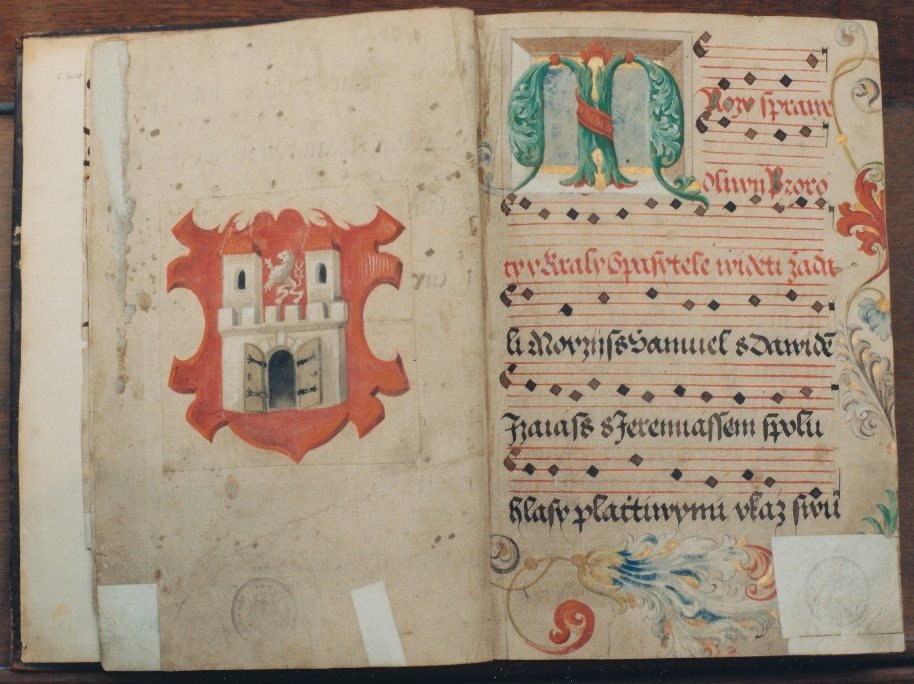 Mnozy sprawe
dliwij Proro
cy y Kraly Spasytele wideti žáda
li Moyzijss Samuel s Dawidē
Izaiass s Jeremiassem spolu
hlasy plačtiwymi vkaž swů